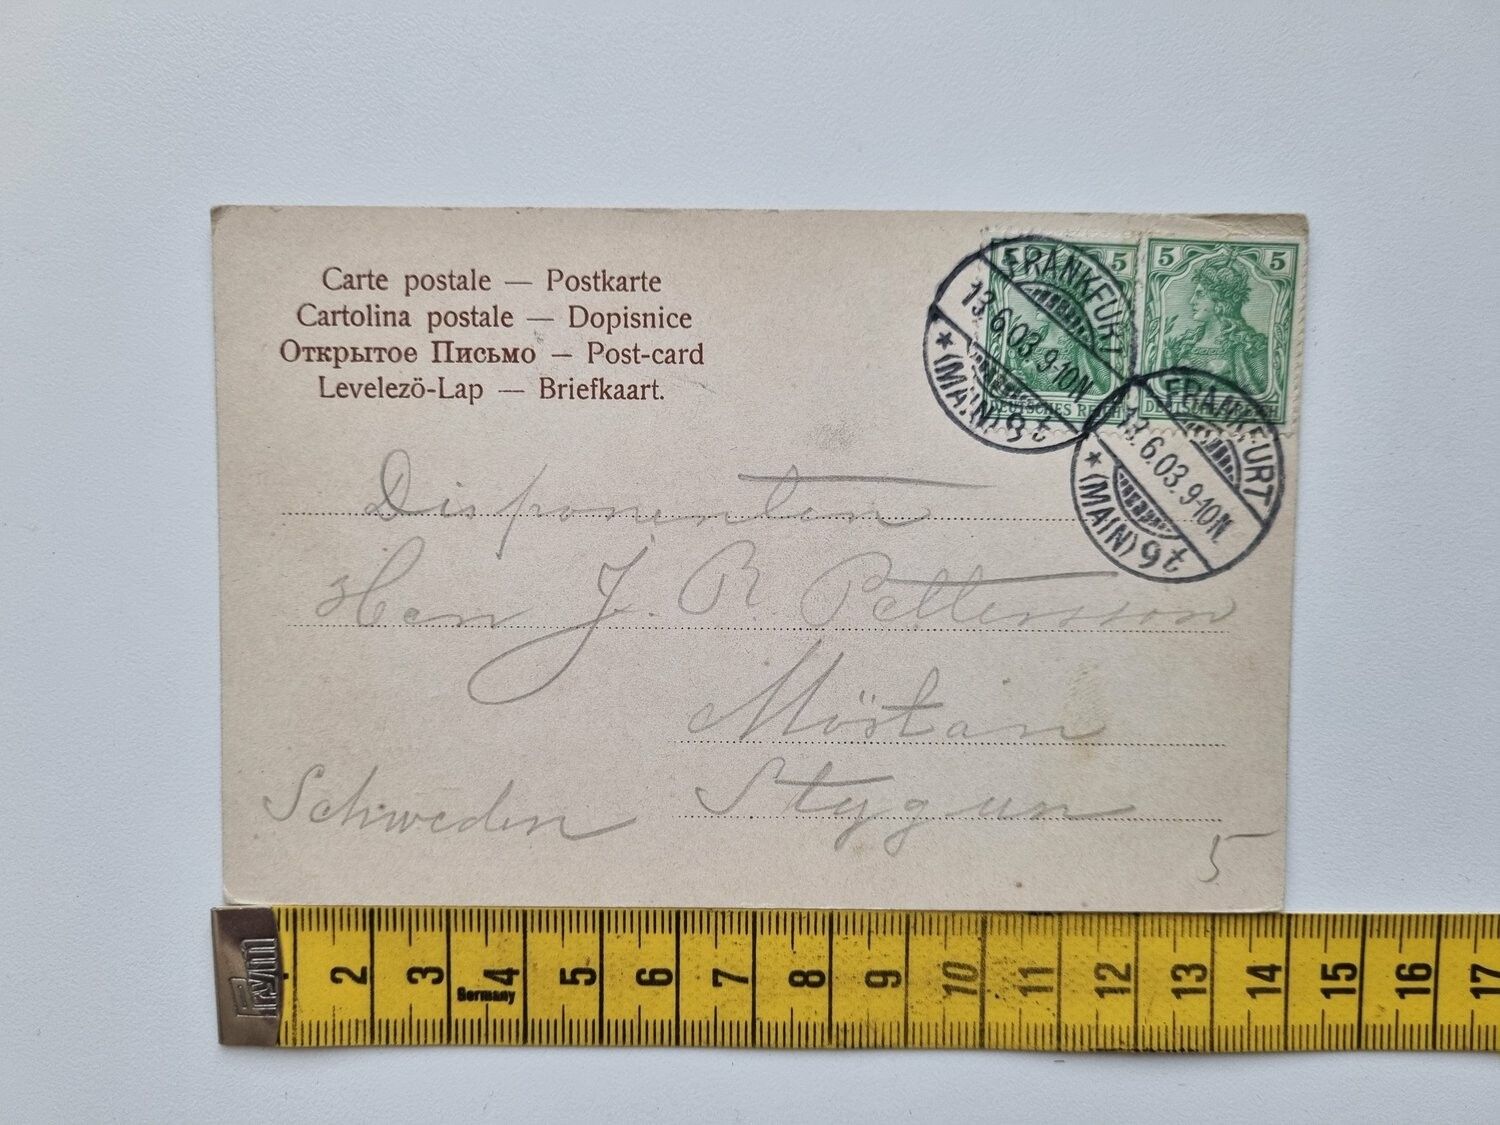 Carte postale — Postkarte
Cartolina postale — Dopisnice
Открытое Письмо — Post-card
Levelezö-Lap — Briefkaart.
5 5
DEUTSCHES REICH
5 5
DEUTSCHES REICH
FRANKFURT
13.6.03.9-10N.
* (MAIN) 9 t
FRANKFURT
13.6.03.9-10N.
* (MAIN) 9 t
Disponenten
Herr J. R. Pettersson
Möstan
Schweden Stygun
5
Prym
Germany
2 3 4 5 6 7 8 9 10 11 12 13 14 15 16 17